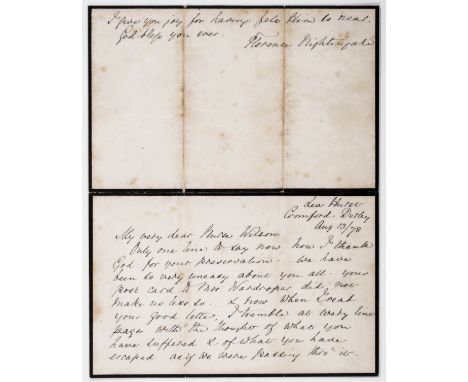 I give you joy for having felt Him so near.
God bless you ever.
Florence Nightingale
Lea Hurst
Cromford: Derby
Aug 13/78
My very dear Nurse Wilson
Only one line to say now how I thank
God for your preservation. We have
been so very uneasy about you all. Your
post card to Mrs Wardroper did not
make us less so. & now when I read
your good letter, I tremble at every line
page with the thought of what you
have suffered & of what you have
escaped as if we were passing thro' it